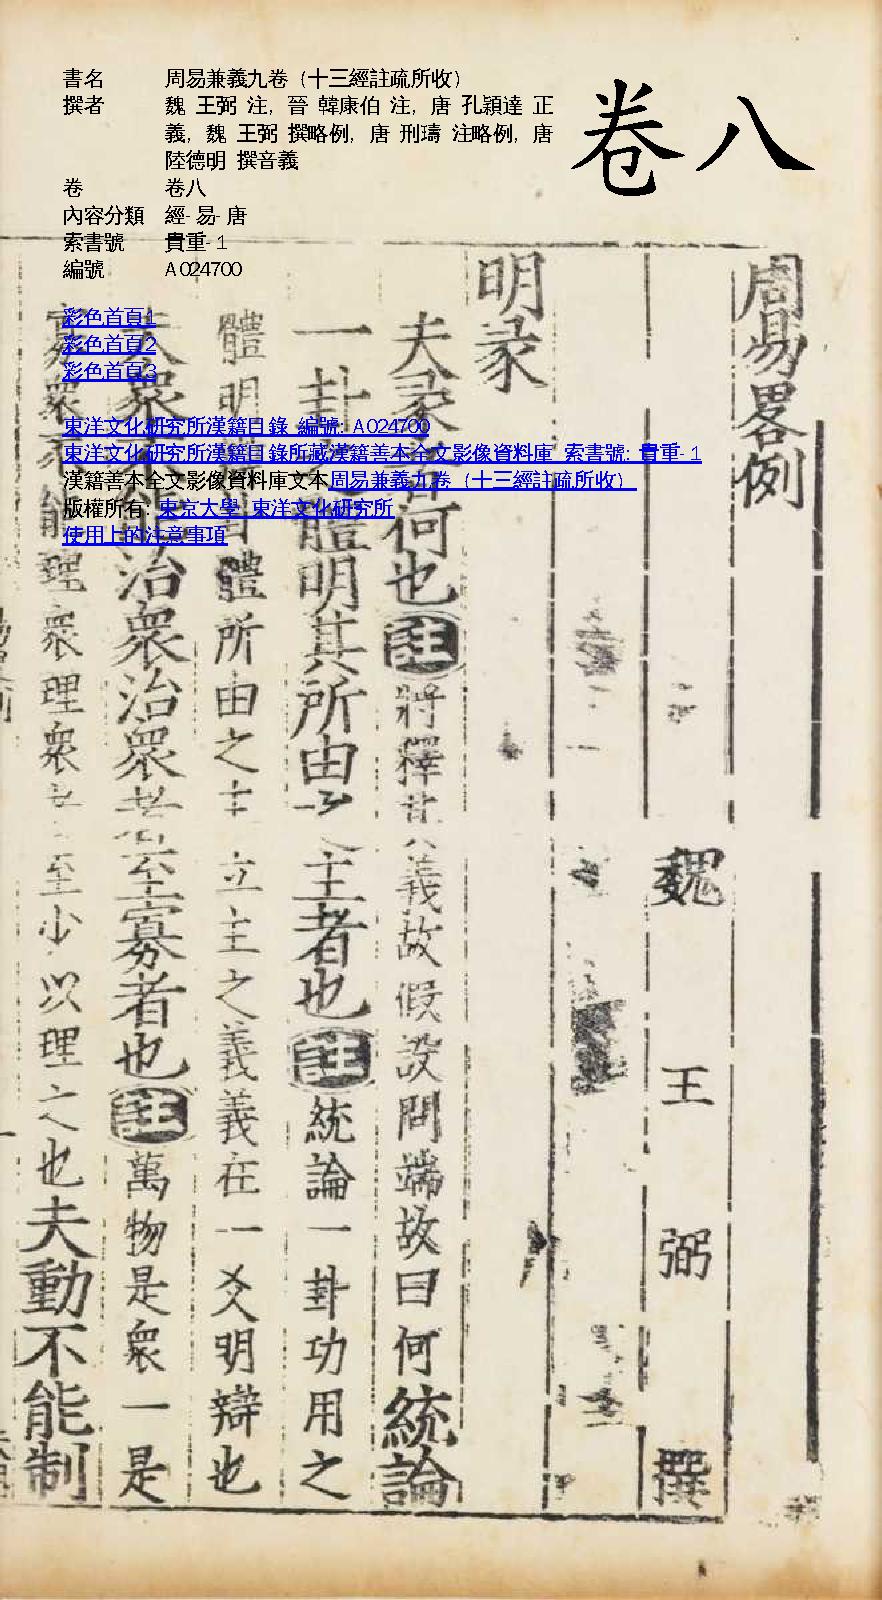 書名 周易兼義九卷（十三經註疏所收）
撰者 魏 王弼 注, 晉 韓康伯 注, 唐 孔穎達 正
義, 魏 王弼 撰略例, 唐 刑璹 注略例, 唐
陸德明 撰音義
卷 卷八
內容分類 經-易-唐
索書號 貴重-1
編號 A024700
卷八
彩色首頁1
彩色首頁2
彩色首頁3
東洋文化研究所漢籍目錄 編號: A024700
東洋文化研究所漢籍目錄所藏漢籍善本全文影像資料庫 索書號: 貴重-1
漢籍善本全文影像資料庫文本周易兼義九卷（十三經註疏所收）
版權所有: 東京大學 東洋文化研究所
使用上的注意事項
周易畧例
魏 王 弼 撰
明彖
夫彖者何也註將釋其義故假設問端故曰何統論
一卦之體明其所由之主者也註統論一卦功用之
體明體所由之主立主之義義在一爻明辯也
夫衆不能治衆治衆者至寡者也註萬物是衆一是
寡衆不能理衆理衆者至少以理之也夫動不能制